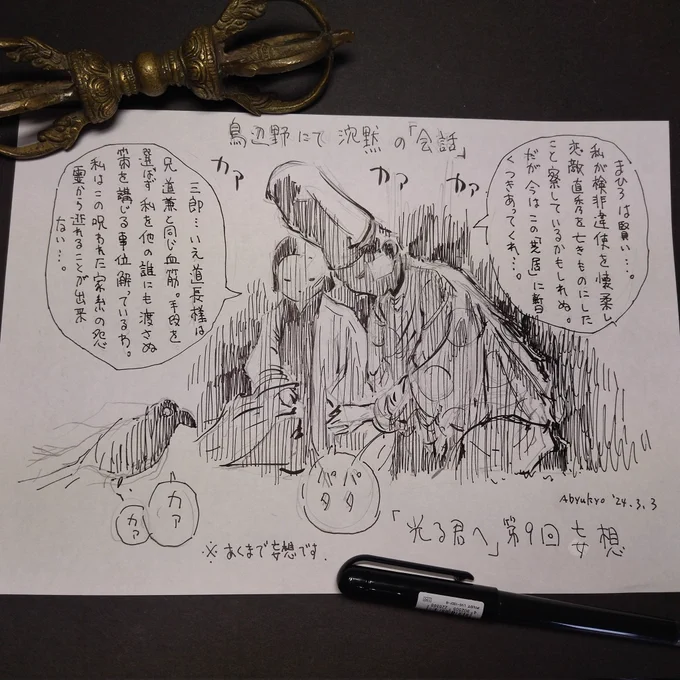 鳥辺野にて 沈黙の「会話」
まひろは賢い…。
私が検非違使を懐柔し
恋敵直秀を亡きものにした
こと察しているかもしれぬ。
だが今はこの「芝居」に暫し
くつきあってくれ…。
カァ
カァ
カァ
三郎…いえ道長様は
兄 道兼と同じ血筋。手段を
選ばず 私を他の誰にも渡さぬ
策を講じる事位解っているわ。
私はこの呪われた家系の怨
霊から逃れることが出来
ない…。
カァ
カァ
パタ
パタ
Abyukyo '24.3.3
「光る君へ」第9回 妄想
※あくまで妄想です.